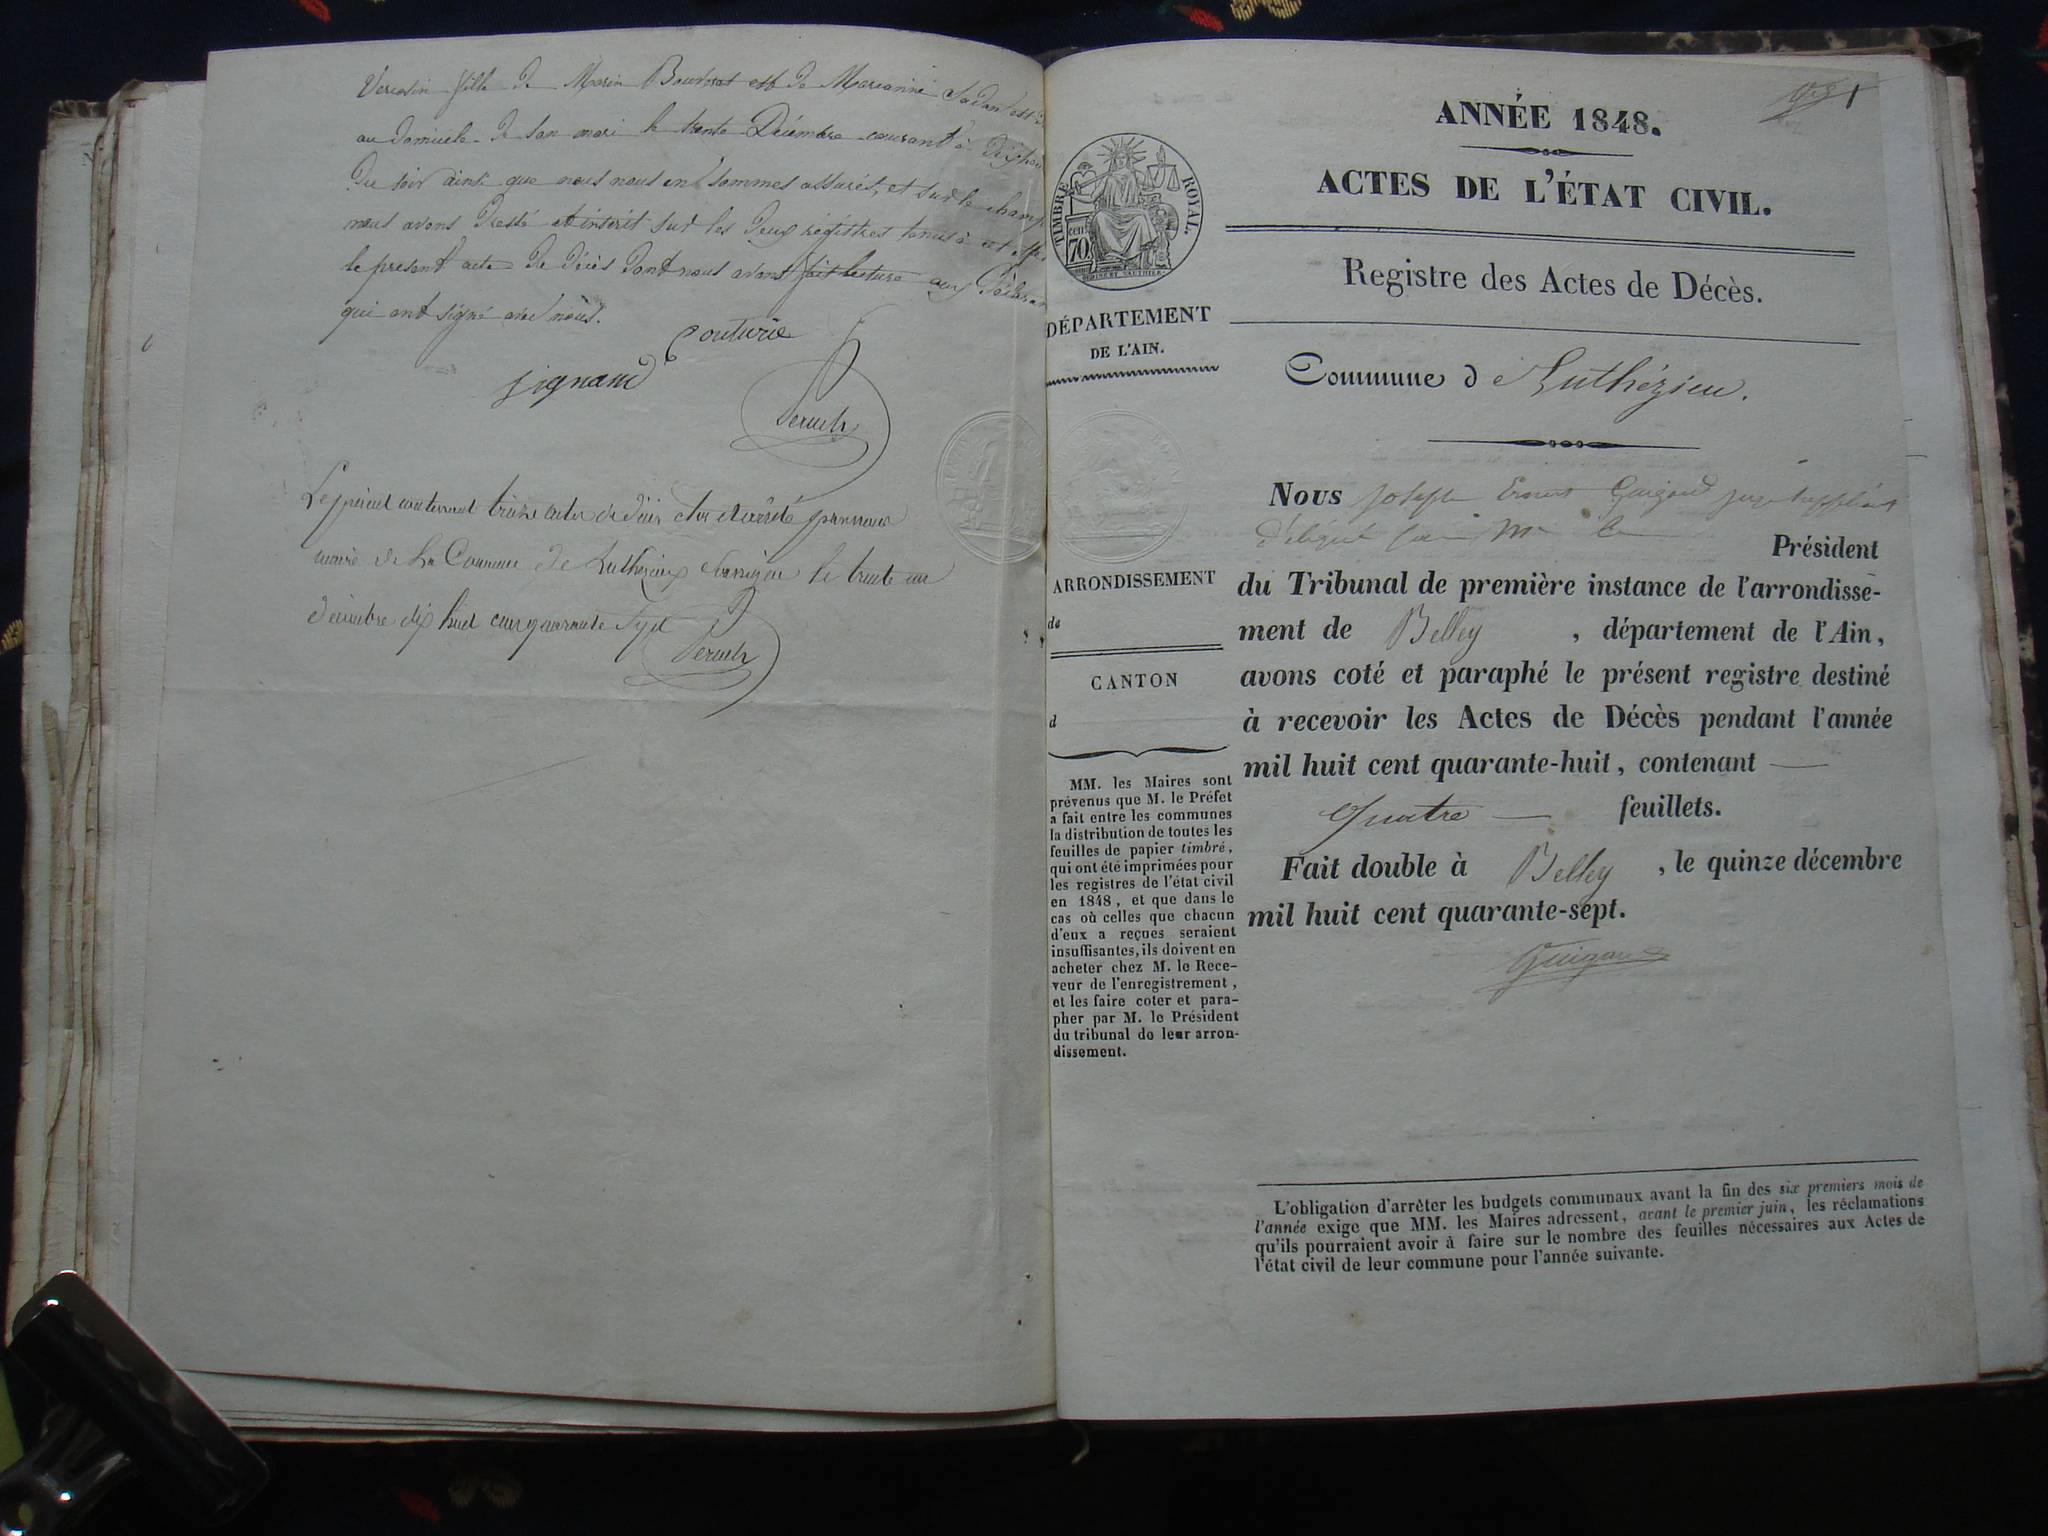 fille de Marin
au domicile de son mari le trente Décembre courant à
Du soir ainsi que nous nous en sommes assurés, et sur le champ
nous avons Dressé et inscrit sur les Deux régistres tenus à cet
le présent acte De décès Dont nous avons fait lecture aux
qui ont signé avec nous.
Couturie
Le présent contenant treize actes de décès clos et arrêté par nous
maire de La Commune de Luthézieu le trente un
décembre dix huit cent quarante Sept
1
ANNÉE 1848.
ACTES DE L'ÉTAT CIVIL.
TIMBRE ROYAL.
70
DÉPARTEMENT
DE L'AIN.
Registre des Actes de Décès.
Commune d e Luthézieu.
Nous Joseph Guigard juge suppléant
Délégué par Mr le
Président
du Tribunal de première instance de l'arrondisse-
ment de Belley , département de l'Ain,
avons coté et paraphé le présent registre destiné
à recevoir les Actes de Décès pendant l'année
mil huit cent quarante-huit, contenant —
Quatre — feuillets.
Fait double à Belley , le quinze décembre
mil huit cent quarante-sept.
ARRONDISSEMENT
de
CANTON
d
MM. les Maires sont
prévenus que M. le Préfet
a fait entre les communes
la distribution de toutes les
feuilles de papier timbré,
qui ont été imprimées pour
les registres de l'état civil
en 1848, et que dans le
cas où celles que chacun
d'eux a reçues seraient
insuffisantes, ils doivent en
acheter chez M. le Rece-
veur de l'enregistrement,
et les faire coter et para-
pher par M. le Président
du tribunal de leur arron-
dissement.
L'obligation d'arrêter les budgets communaux avant la fin des six premiers mois de
l'année exige que MM. les Maires adressent, avant le premier juin, les réclamations
qu'ils pourraient avoir à faire sur le nombre des feuilles nécessaires aux Actes de
l'état civil de leur commune pour l'année suivante.